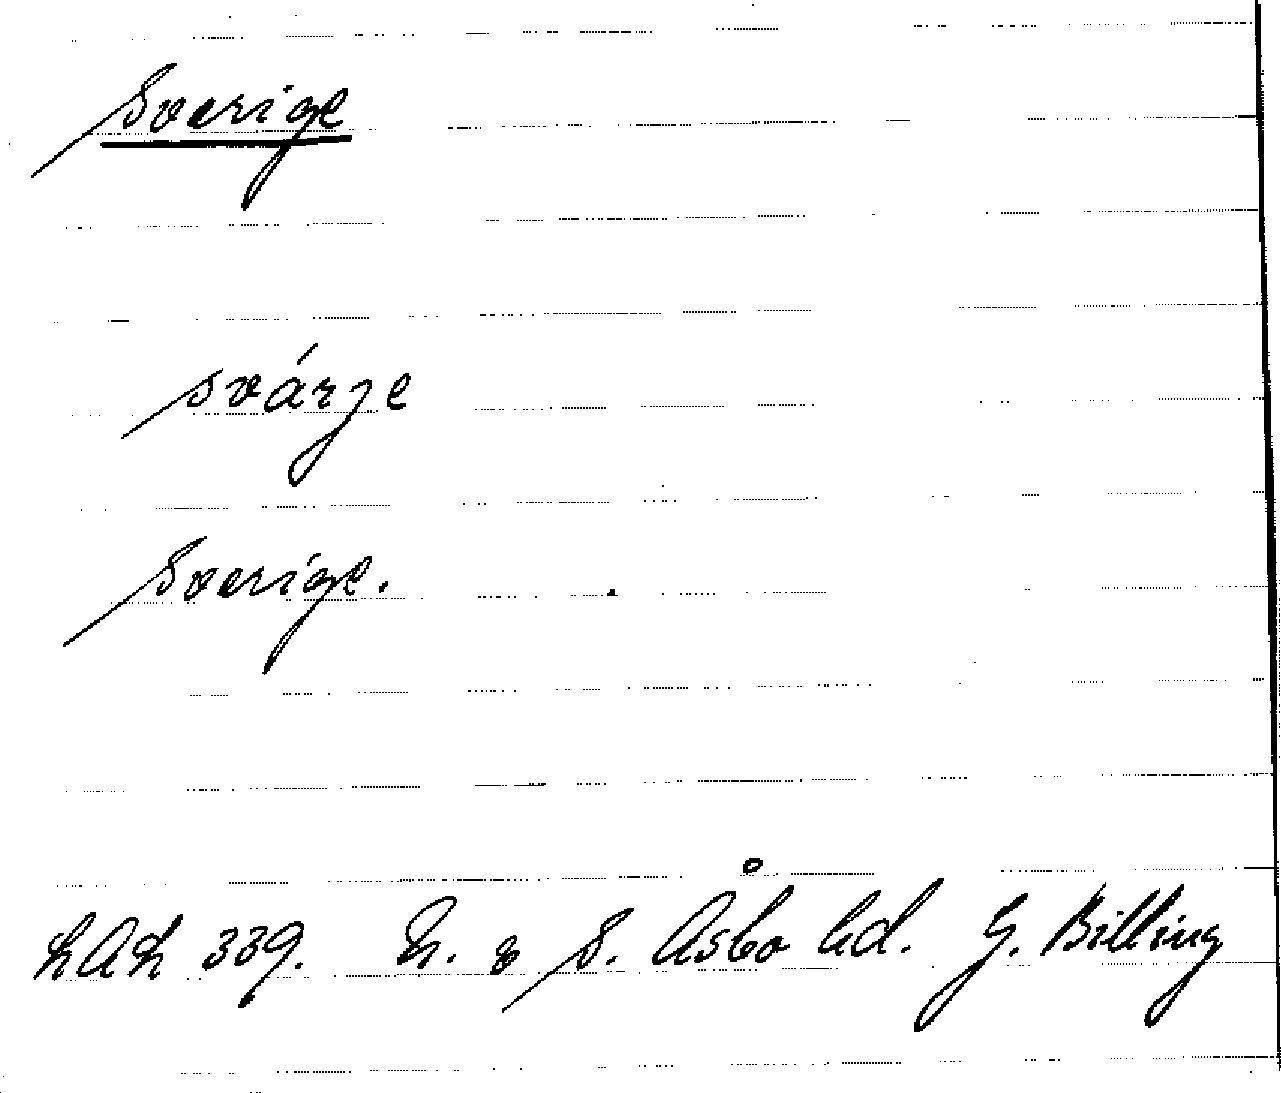 Sverige
svárje
Sverige.
LAL 339. N. o S. Åsbo hd. G. Billing